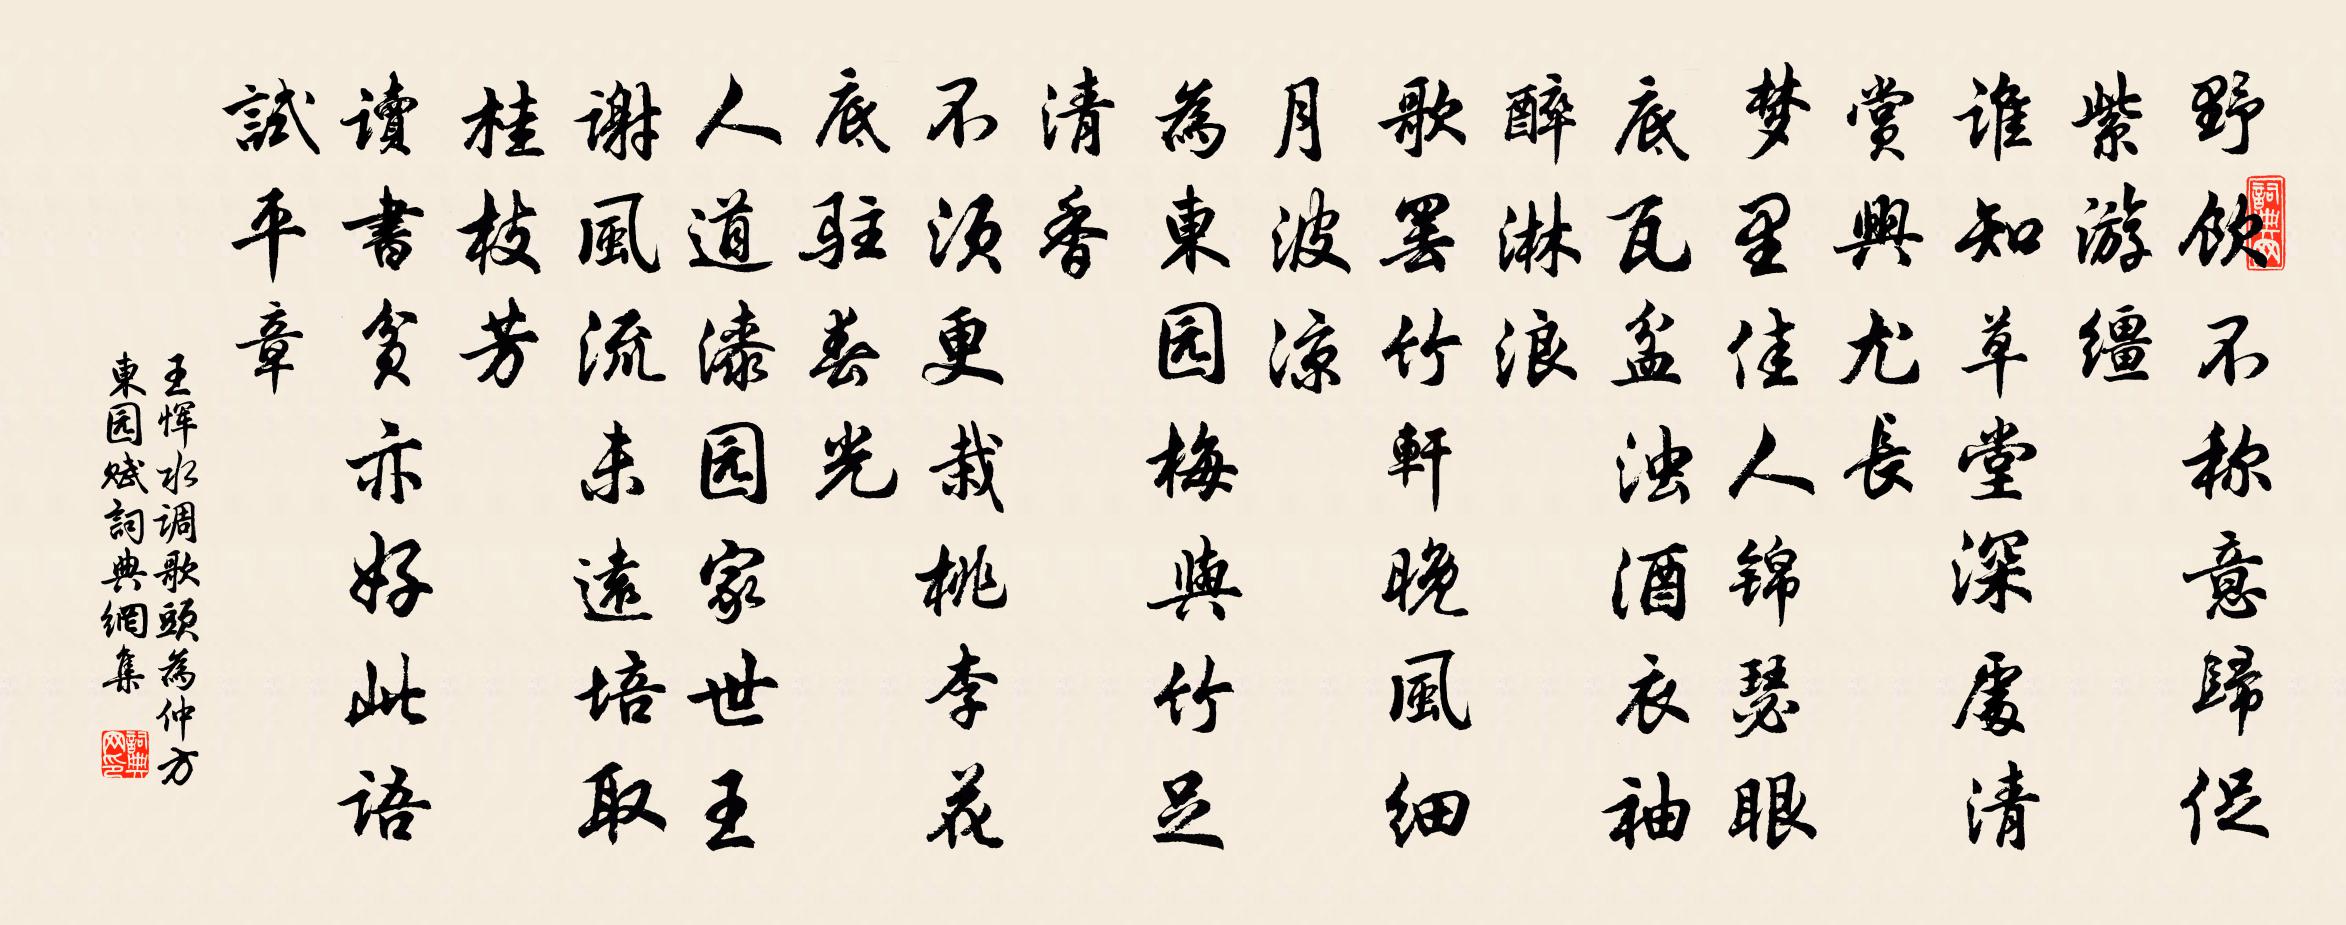 野飲不称意歸促
紫游缰
谁知草堂深處清
赏興尤長
梦里佳人锦瑟眼
底瓦盆浊酒衣袖
醉淋浪
歌罢竹軒晚風细
月波凉
為東园梅與竹足
清香
不须更栽桃李花
底驻春光
人道漆园家世王
谢風流未遠培取
桂枝芳
讀書貧亦好此语
試平章
王恽水调歌頭為仲方
東园赋詞典網集
詞典网
詞典网印